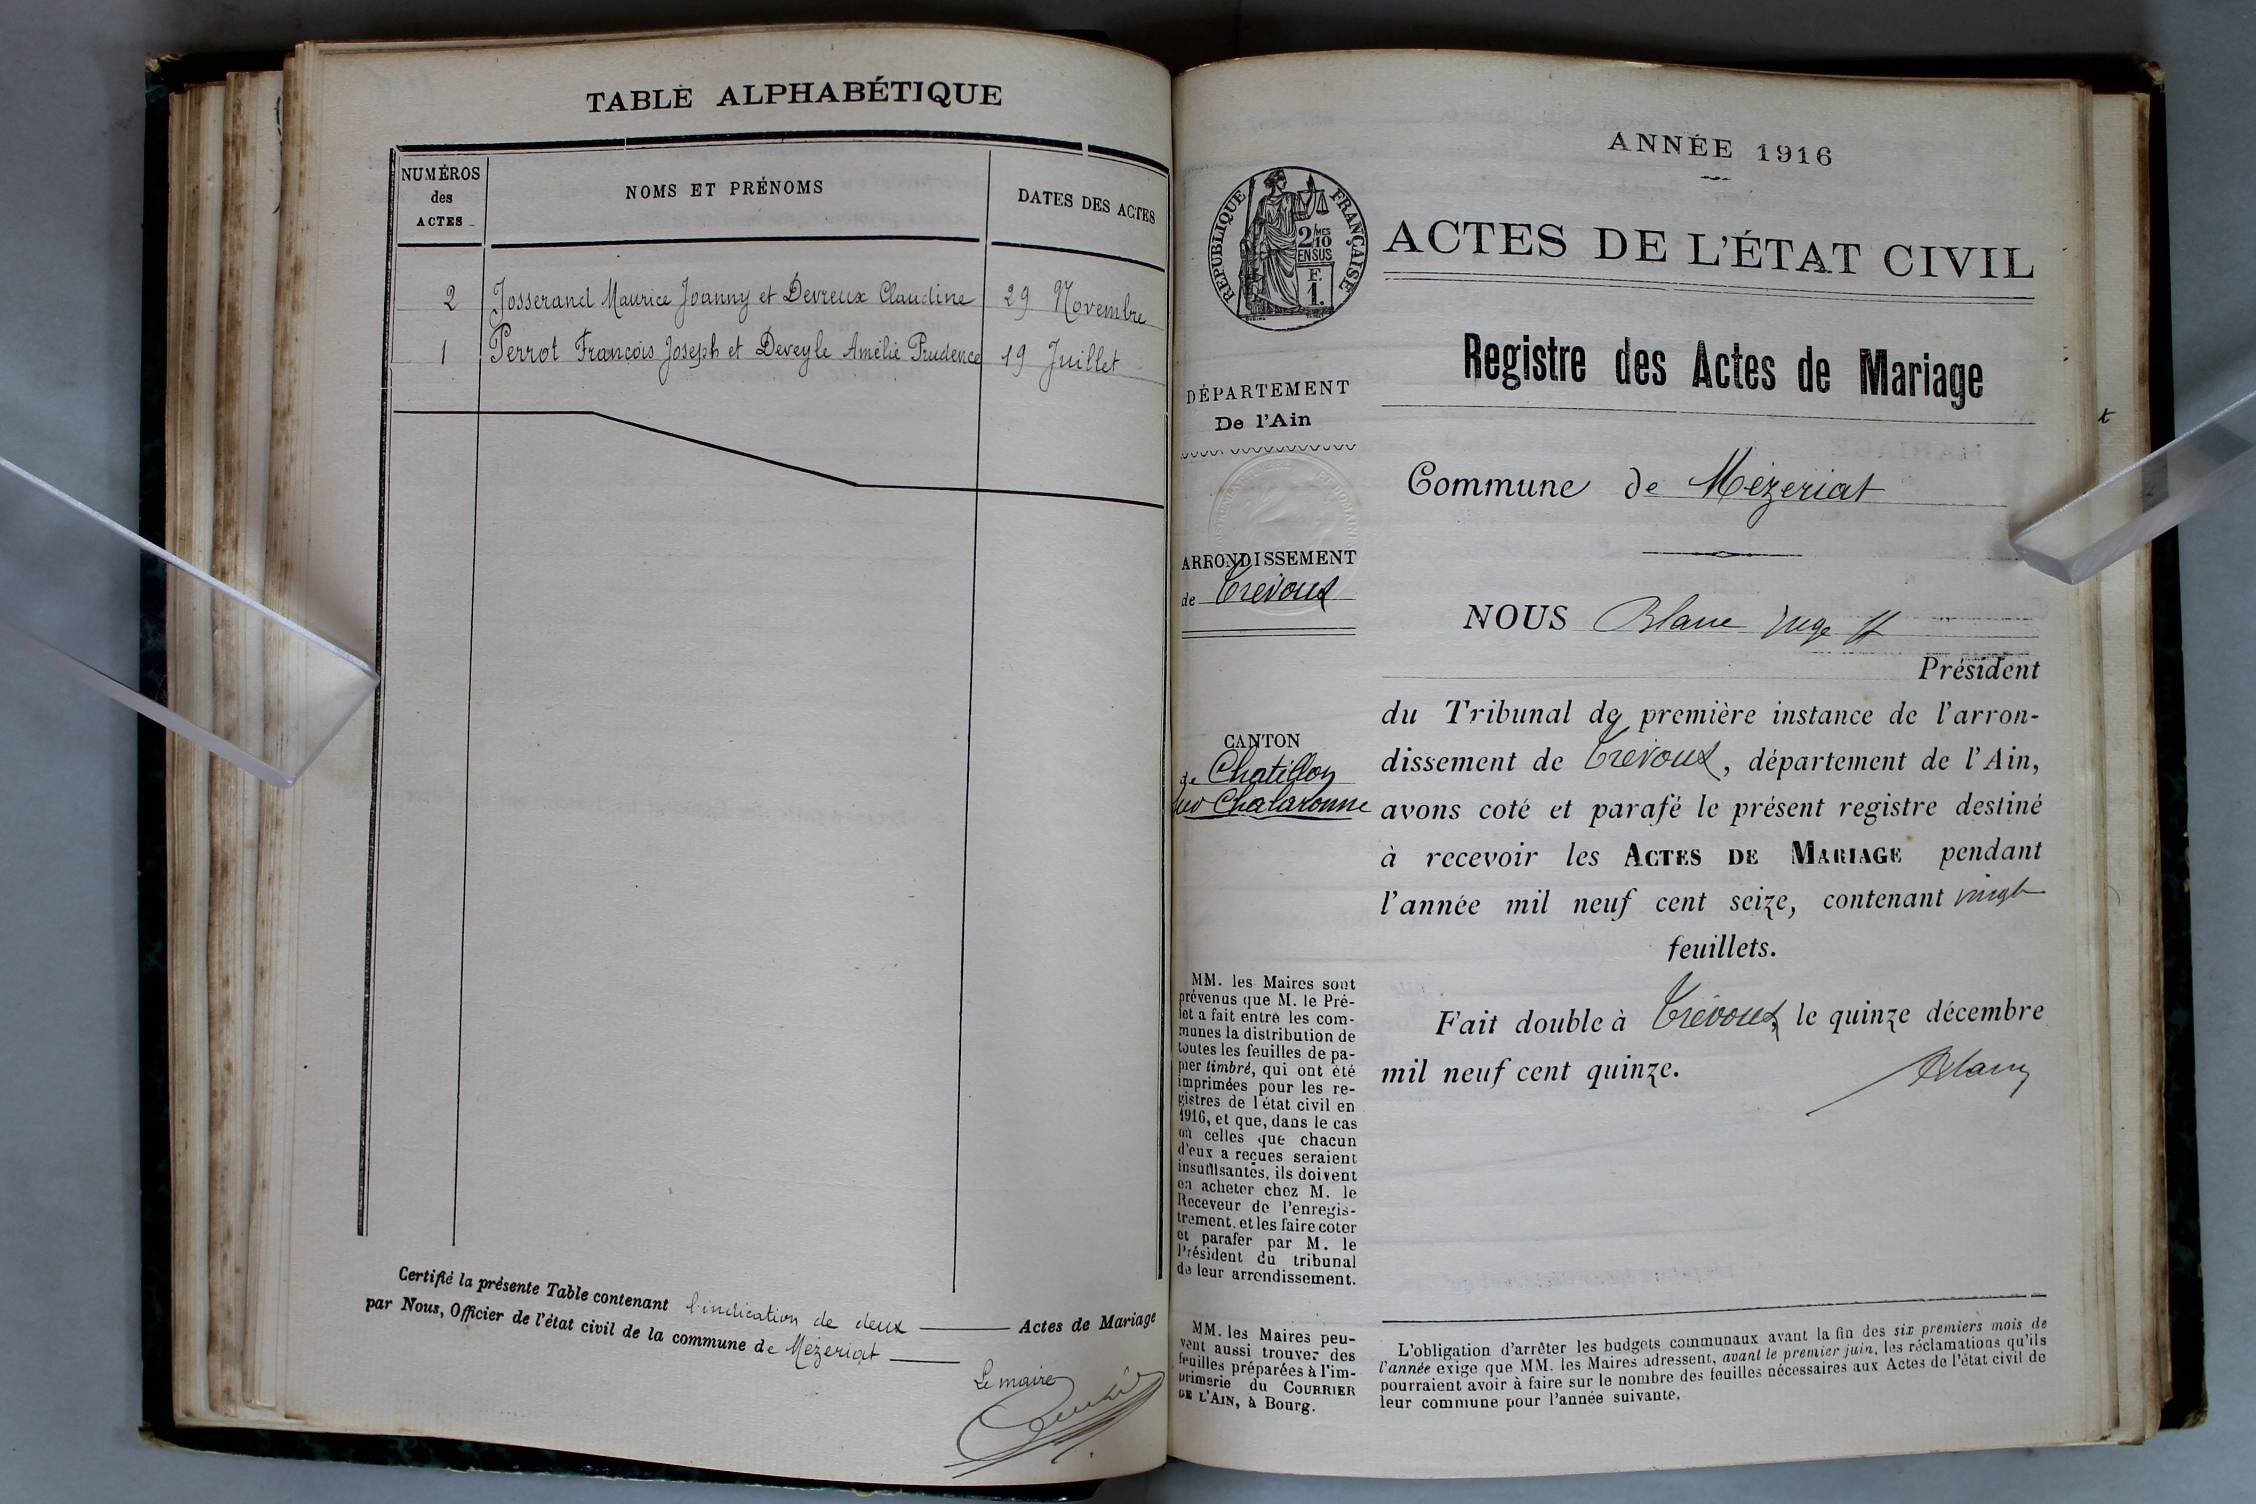 TABLE ALPHABÉTIQUE
NUMÉROS
des
ACTES
NOMS ET PRÉNOMS
DATES DES ACTES
2 Josserand Maurice Joanny et Devreux Claudine 29 Novembre
1 Perrot François Joseph et Deveyle Amélie Prudence 19 Juillet
Certifié la présente Table contenant l'indication de deux Actes de Mariage
par Nous, Officier de l'état civil de la commune de Mézeriat
Le maire
ANNÉE 1916
RÉPUBLIQUE FRANÇAISE
2/10 MES
EN SUS
F.
1.
ACTES DE L'ÉTAT CIVIL
Registre des Actes de Mariage
DÉPARTEMENT
De l'Ain
Commune de Mézeriat
ARRONDISSEMENT
de Trévoux
NOUS Blanc Juge
Président
du Tribunal de première instance de l'arron-
dissement de Trévoux, département de l'Ain,
avons coté et parafé le présent registre destiné
à recevoir les ACTES DE MARIAGE pendant
l'année mil neuf cent seize, contenant vingt
feuillets.
Fait double à Trévoux, le quinze décembre
mil neuf cent quinze.
Blanc
CANTON
de Chatillon
sur Chalaronne
MM. les Maires sont
prévenus que M. le Pré-
fet a fait entre les com-
munes la distribution de
toutes les feuilles de pa-
pier timbré, qui ont été
imprimées pour les re-
gistres de l'état civil en
1916, et que, dans le cas
où celles que chacun
d'eux a reçues seraient
insuffisantes, ils doivent
en acheter chez M. le
Receveur de l'enregis-
trement, et les faire coter
et parafer par M. le
Président du tribunal
de leur arrondissement.
MM. les Maires peu-
vent aussi trouver des
feuilles préparées à l'im-
primerie du COURRIER
DE L'AIN, à Bourg.
L'obligation d'arrêter les budgets communaux avant la fin des six premiers mois de
l'année exige que MM. les Maires adressent, avant le premier juin, les réclamations qu'ils
pourraient avoir à faire sur le nombre des feuilles nécessaires aux Actes de l'état civil de
leur commune pour l'année suivante.